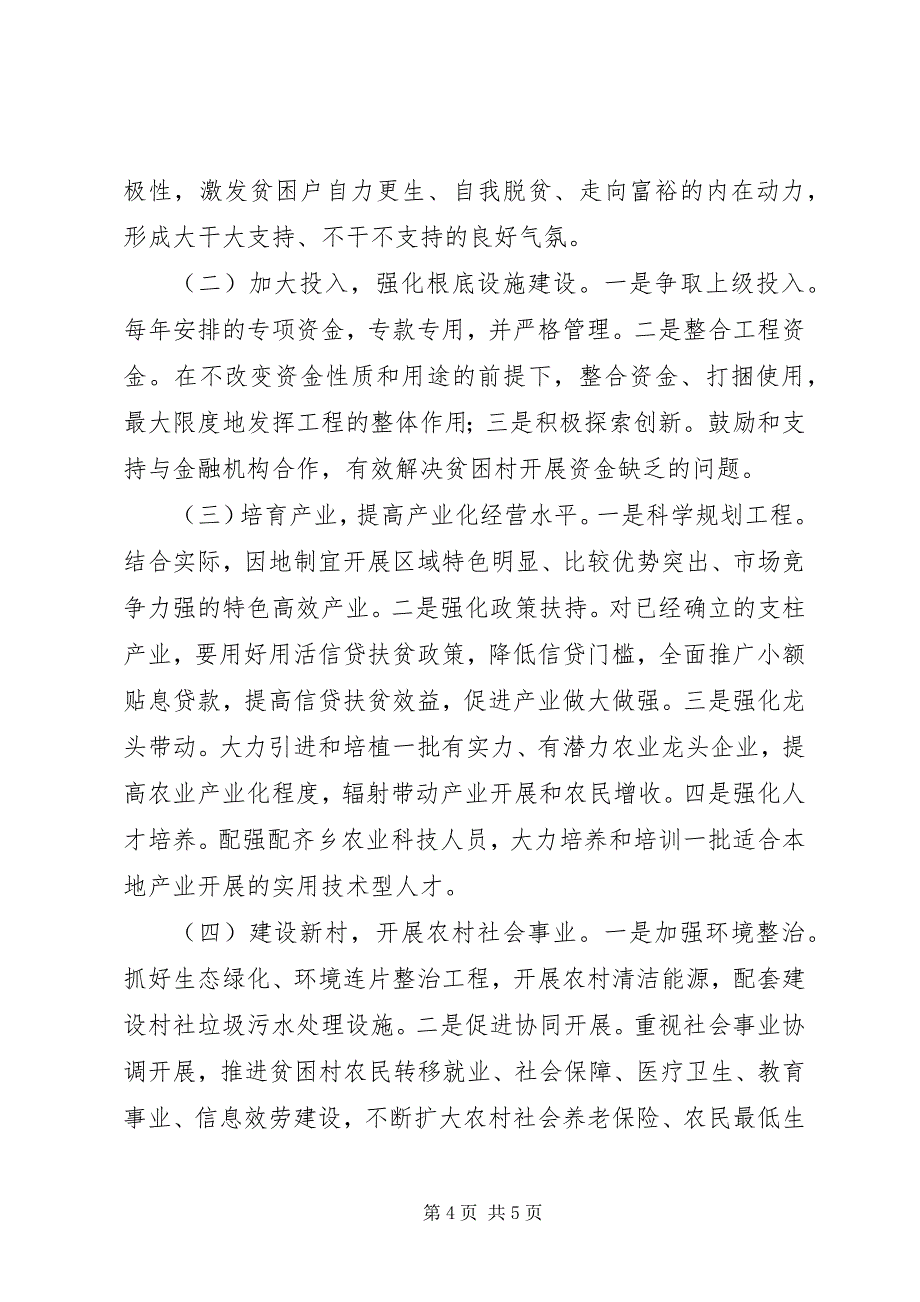 极性，激发贫困户自力更生、自我脱贫、走向富裕的内在动力，
形成大干大支持、不干不支持的良好气氛。
（二）加大投入，强化根底设施建设。一是争取上级投入。
每年安排的专项资金，专款专用，并严格管理。二是整合工程资
金。在不改变资金性质和用途的前提下，整合资金、打捆使用，
最大限度地发挥工程的整体作用；三是积极探索创新。鼓励和支
持与金融机构合作，有效解决贫困村开展资金缺乏的问题。
（三）培育产业，提高产业化经营水平。一是科学规划工程。
结合实际，因地制宜开展区域特色明显、比较优势突出、市场竞
争力强的特色高效产业。二是强化政策扶持。对已经确立的支柱
产业，要用好用活信贷扶贫政策，降低信贷门槛，全面推广小额
贴息贷款，提高信贷扶贫效益，促进产业做大做强。三是强化龙
头带动。大力引进和培植一批有实力、有潜力农业龙头企业，提
高农业产业化程度，辐射带动产业开展和农民增收。四是强化人
才培养。配强配齐乡农业科技人员，大力培养和培训一批适合本
地产业开展的实用技术型人才。
（四）建设新村，开展农村社会事业。一是加强环境整治。
抓好生态绿化、环境连片整治工程，开展农村清洁能源，配套建
设村社垃圾污水处理设施。二是促进协同开展。重视社会事业协
调开展，推进贫困村农民转移就业、社会保障、医疗卫生、教育
事业、信息效劳建设，不断扩大农村社会养老保险、农民最低生
第 4 页 共 5 页